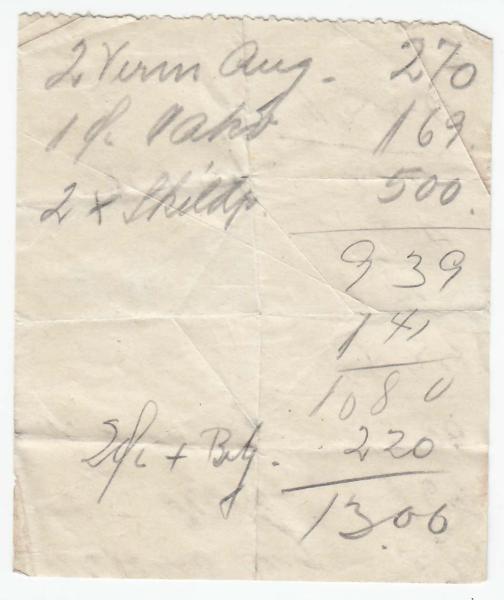 2 Verm Aug. 270
1 fl. 169
2 x Skildp. 500.
939
141
1080
2 fl. + 220
13.00